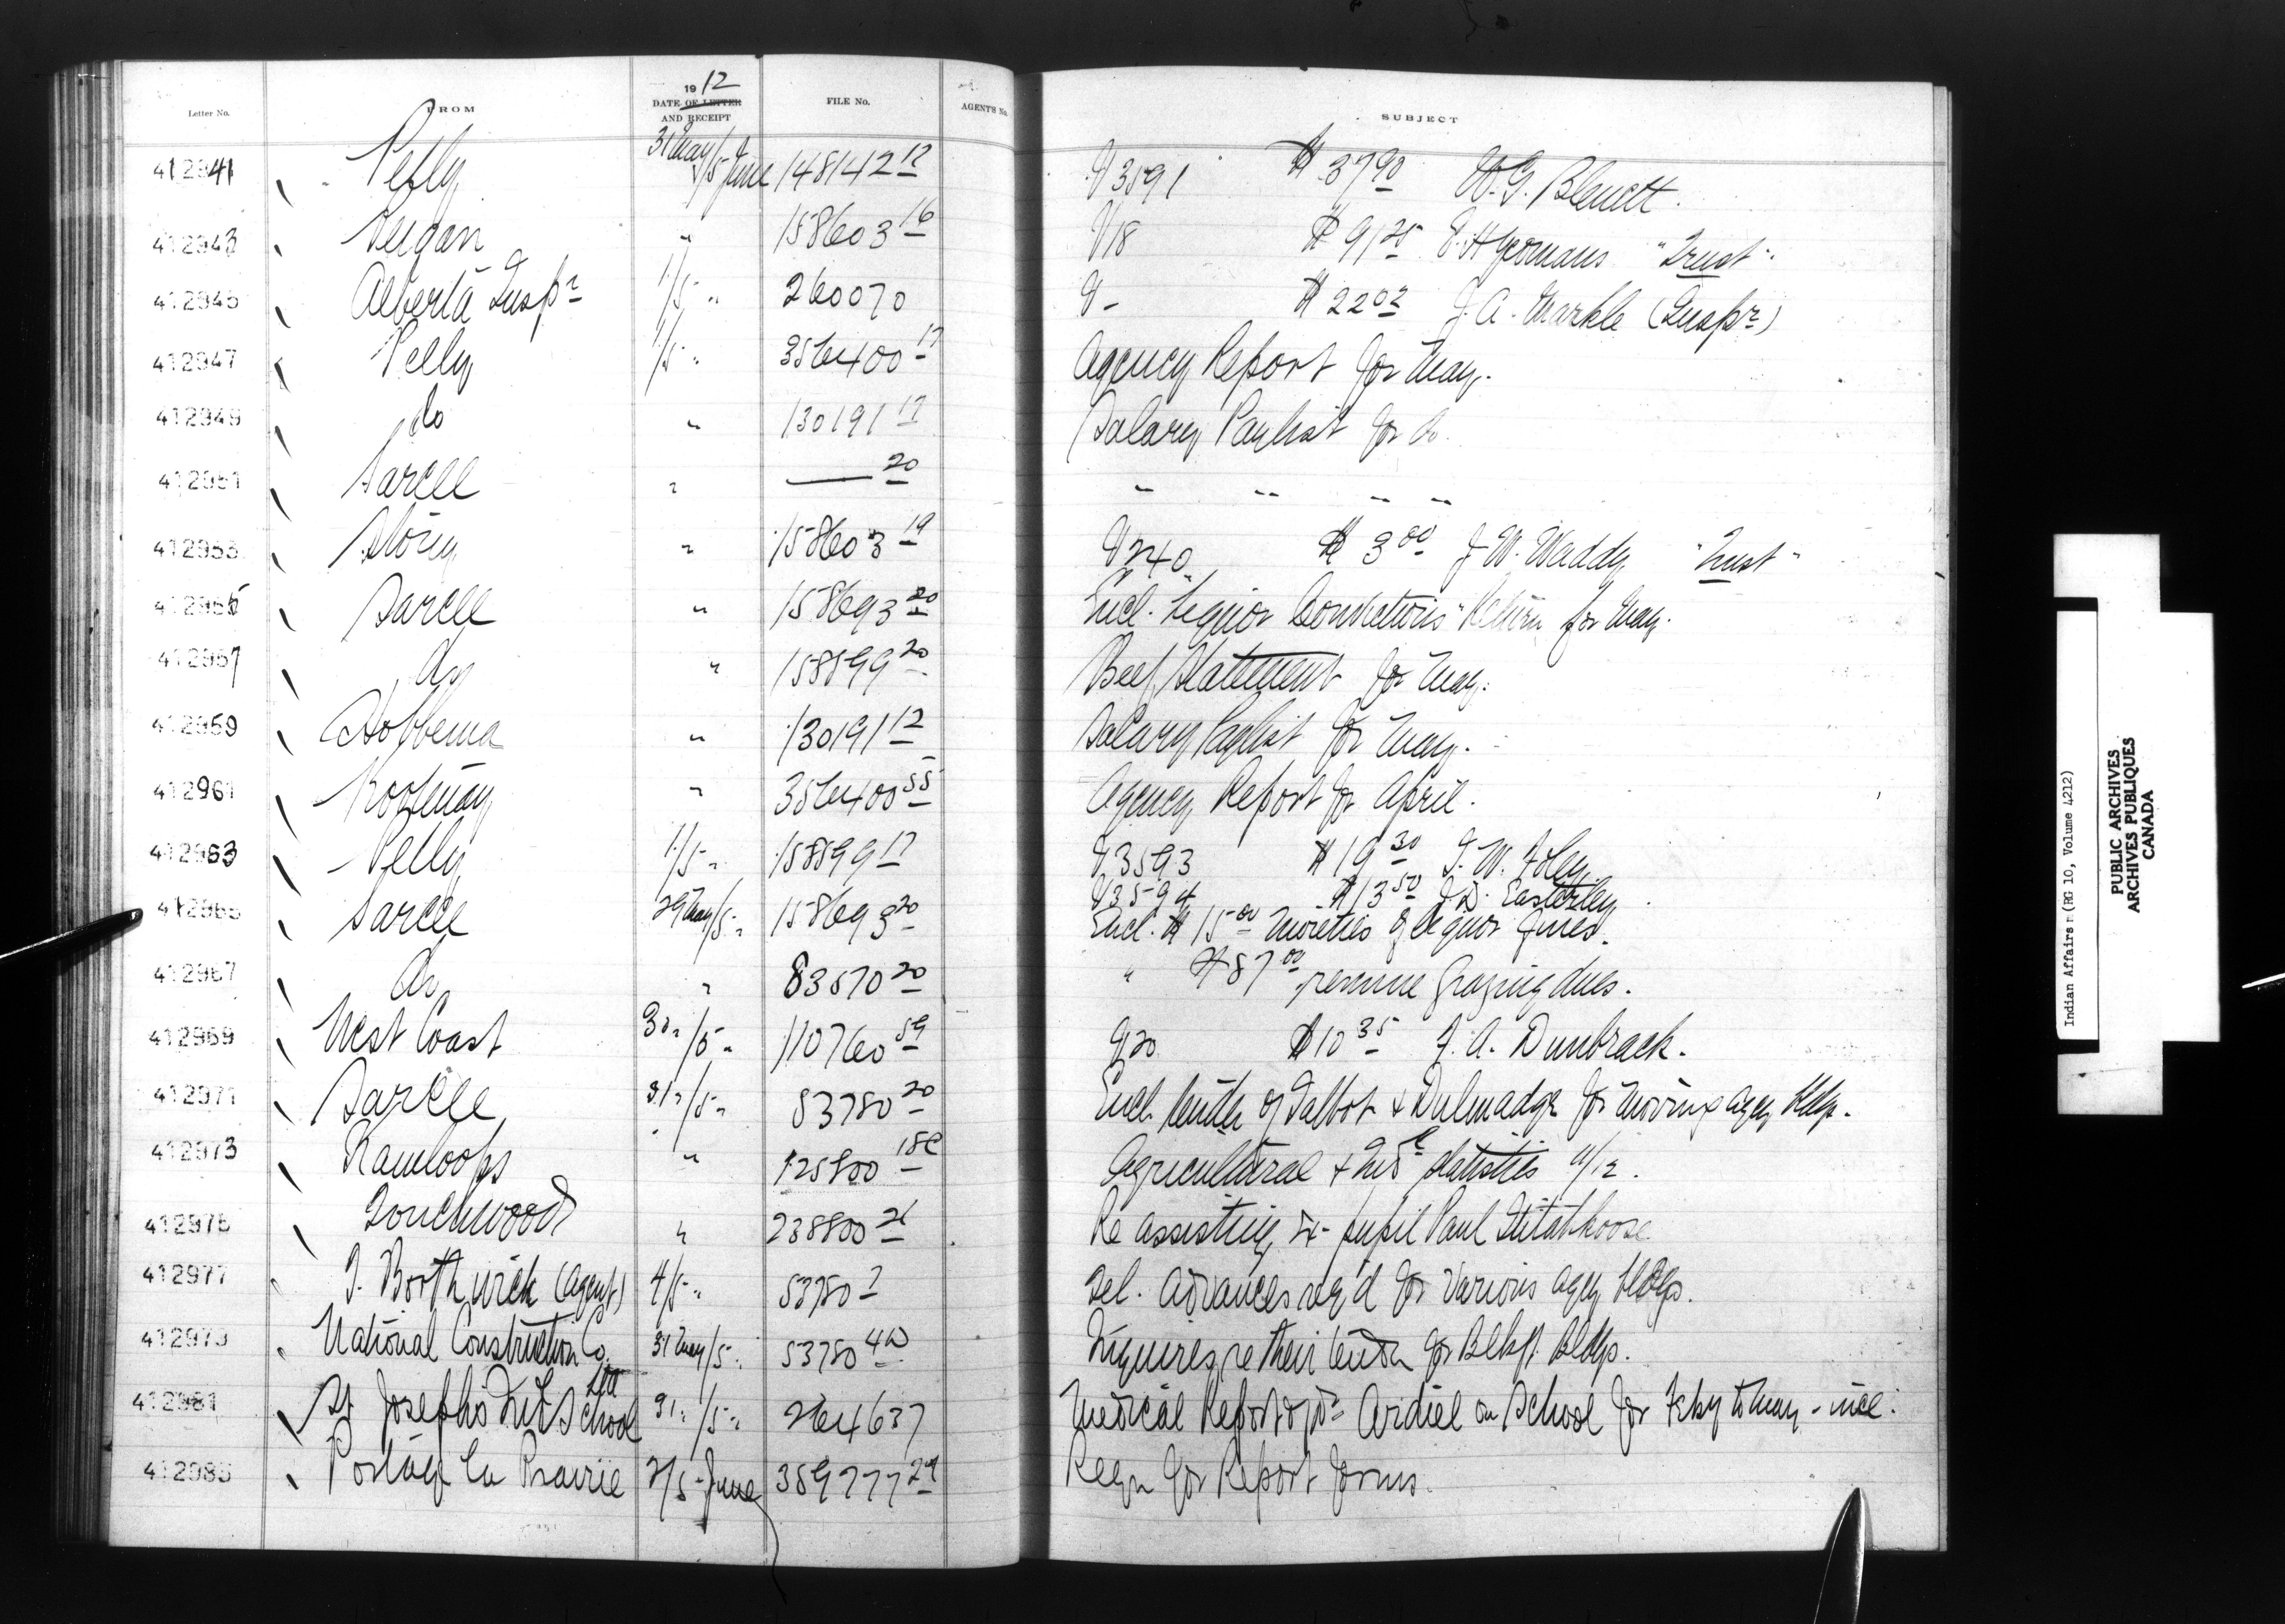 Letter No. FROM 1912 DATE OF LETTER AND RECEIPT FILE No. AGENT'S No. SUBJECT
412941 Pelly 31 May/5 June 148142 12 V 3591 $37 90 W.G. Blewett.
412943 Peigan " 158603 16 V 18 $91 25 E.H. Yeomans "Trust".
412945 Alberta Inspr 1/5 " 260070 V - $22 02 J.A. Markle (Inspr)
412947 Pelly 1/5 " 356400 17 Agency Report for May.
412949 do " 130191 17 Salary Paylist for do.
412951 Sarcee " — 20 " " " "
412953 Stony " 158603 19 V 240 $3 00 J.W. Waddy "Trust"
412955 Sarcee " 158693 20 Encl. "Liquor Convictions" Return for May.
412957 do " 158599 20 Beef Statement for May.
412959 Hobbema " 130191 12 Salary Paylist for May.
412961 Kootenay " 356400 55 Agency Report for April.
412963 Pelly 1/5 " 158599 17 V 3593 $19 30 T.W. Foley
V 3594 $13 50 J.D. Easterley
412965 Sarcee 29 May/5 " 158693 20 Encl. $15 00 moieties of liquor fines.
412967 do " 83570 20 " $87 00 revenue grazing dues.
412969 West Coast 30 "/5 " 110760 59 V 20 $10 35 F.A. Dunbrack.
412971 Sarcee 31 "/5 " 53780 20 Encl. tender of Talbot & Dulmadge for moving agcy bldgs.
412973 Kamloops " 125800 18C Agricultural & Indl Statistics 11/12.
412975 Touchwood " 238800 26 Re assisting ex-pupil Paul
412977 T. Borthwick (Agent) 4/5 " 53780 7 Tel. Advances req'd for various agcy bldgs.
412979 National Construction Co. Ltd 31 May/5 " 53780 40 Inquires re their tender for Blkft. Bldgs.
412981 St Joseph's Indl School 31 "/5 " 264637 Medical Report of Dr Ardiel on School for Feby to May - incl.
412983 Portage la Prairie 2/5 June 359777 24 Reqn for Report forms.
Indian Affairs (RG 10, Volume 4212)
PUBLIC ARCHIVES
ARCHIVES PUBLIQUES
CANADA